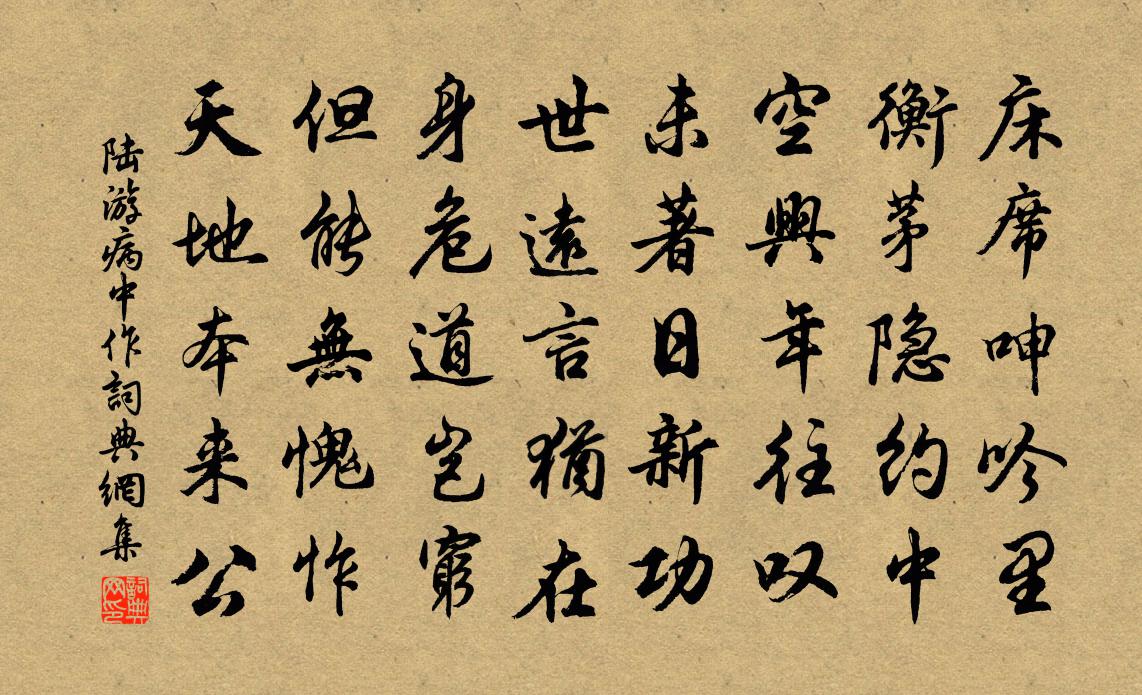 床席呻吟里
衡茅隐約中
空興年往叹
未著日新功
世遠言猶在
身危道岂窮
但能無愧怍
天地本来公
陆游病中作詞典網集
詞典网印